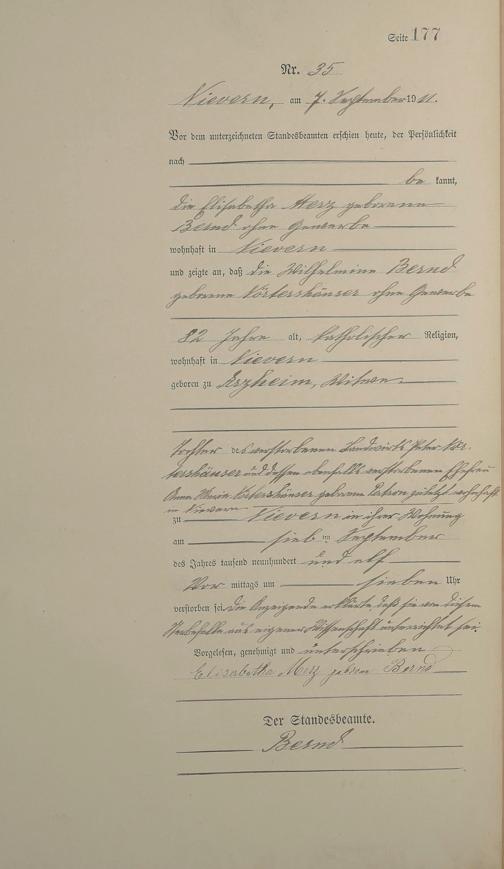 Seite 177
Nr. 35
Nievern, am 7. September 1911.
Vor dem unterzeichneten Standesbeamten erschien heute, der Persönlichkeit
nach
be kannt,
die Elisabetha Merz geborene
Bernd ohne Gewerbe
wohnhaft in Nievern
und zeigte an, daß die Wilhelmine Bernd
geborene Körtershäuser ohne Gewerbe
82 Jahre alt, katholischer Religion,
wohnhaft in Nievern
geboren zu Arzheim, Witwe
Tochter des verstorbenen Landwirts Peter Kör-
tershäuser und dessen ebenfalls verstorbenen Ehefrau
Anna Maria Körtershäuser geborene zuletzt wohnhaft
in Nievern
zu Nievern in ihrer Wohnung
am sieb ten September
des Jahres tausend neunhundert und elf
Vor mittags um sieben Uhr
verstorben sei. Die Anzeigende erklärte, daß sie von diesem
Sterbefalle aus eigener Wissenschaft unterrichtet sei.
Vorgelesen, genehmigt und unterschrieben
Elisabetha Merz geboren Bernd
Der Standesbeamte.
Bernd